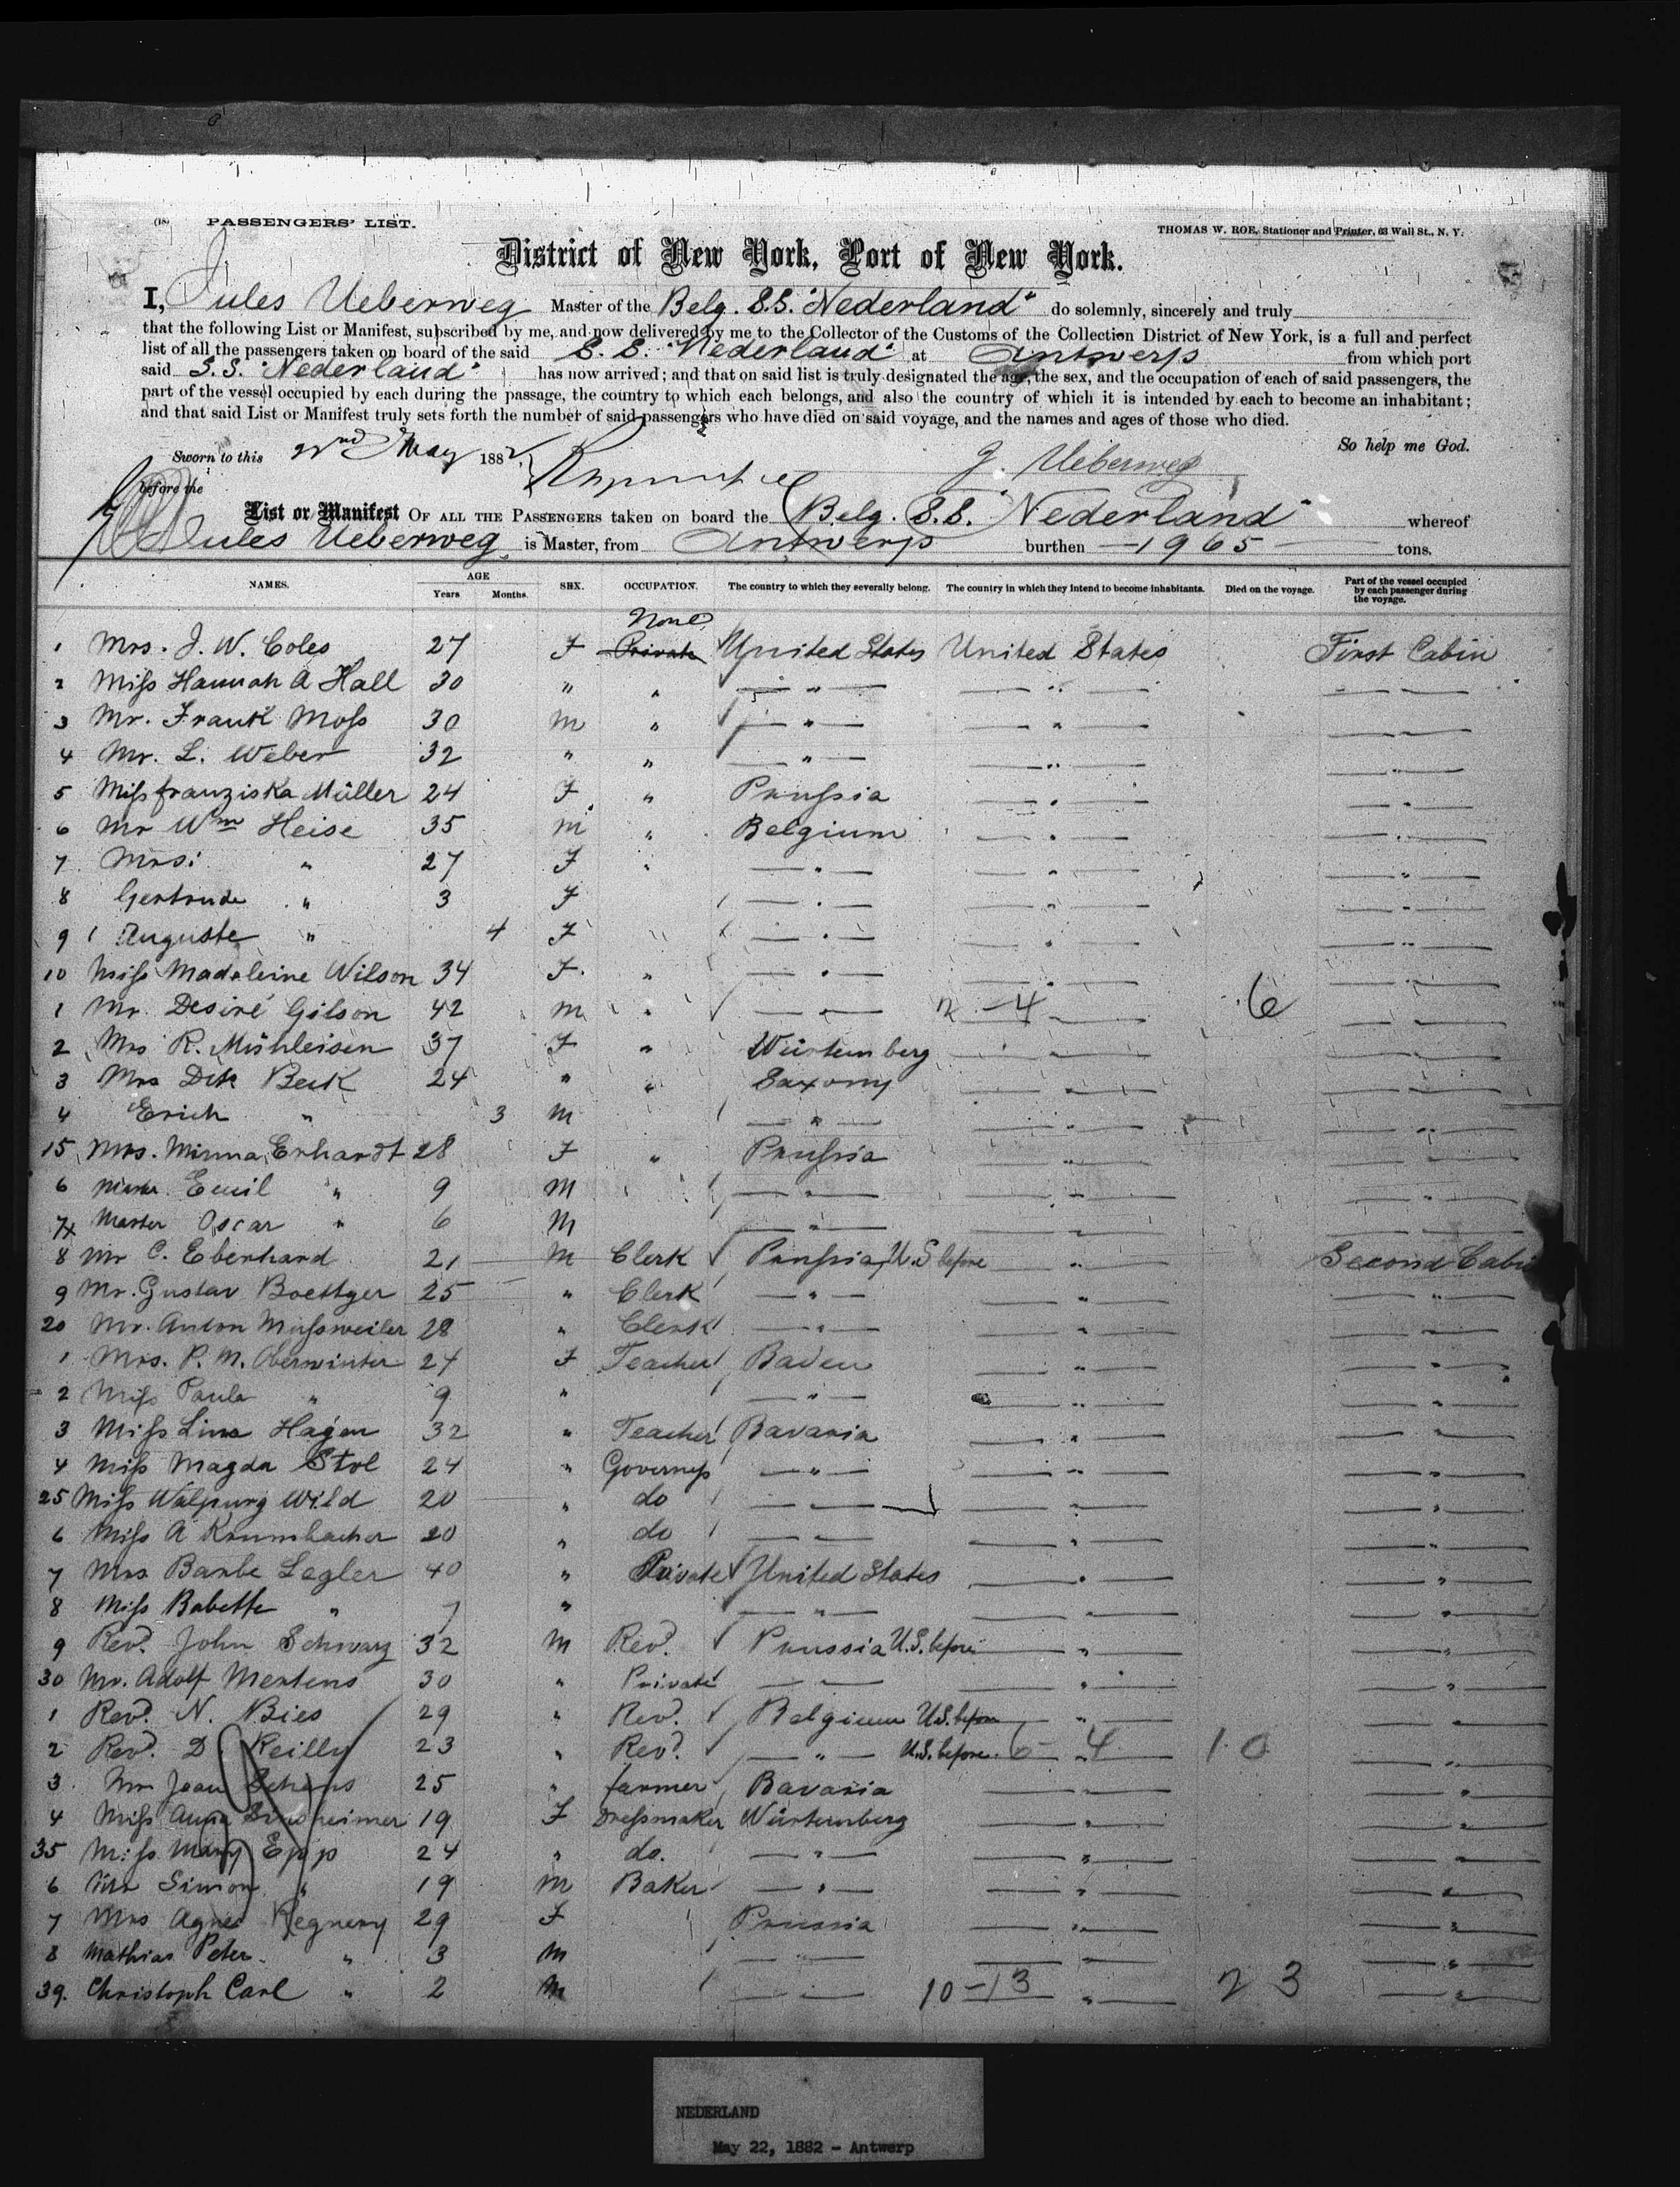 (18) PASSENGERS' LIST.
THOMAS W. ROE, Stationer and Printer, 63 Wall St., N. Y.
District of New York, Port of New York.
I, Jules Ueberweg Master of the Belg. S.S. "Nederland" do solemnly, sincerely and truly
that the following List or Manifest, subscribed by me, and now delivered by me to the Collector of the Customs of the Collection District of New York, is a full and perfect
list of all the passengers taken on board of the said S. S. "Nederland" at Antwerp from which port
said S.S. "Nederland" has now arrived; and that on said list is truly designated the age, the sex, and the occupation of each of said passengers, the
part of the vessel occupied by each during the passage, the country to which each belongs, and also the country of which it is intended by each to become an inhabitant;
and that said List or Manifest truly sets forth the number of said passengers who have died on said voyage, and the names and ages of those who died.
So help me God.
Sworn to this 22nd May 1882 J. Ueberweg
before the
List or Manifest OF ALL THE PASSENGERS taken on board the Belg. S.S. Nederland" whereof
Jules Ueberweg is Master, from Antwerp burthen — 1965 — tons.
NAMES. AGE Years Months. SEX. OCCUPATION. The country to which they severally belong. The country in which they intend to become inhabitants. Died on the voyage. Part of the vessel occupied by each passenger during the voyage.
None
1 Mrs. J. W. Coles 27 F Private United States United States First Cabin
2 Miss Hannah A Hall 30 " " — " — — " — — " —
3 Mr. Frank Moss 30 m " — " — — " — — " —
4 Mr. L. Weber 32 " " — " — — " — — " —
5 Miss Franziska Müller 24 F " Prussia — " — — " —
6 Mr Wm Heise 35 m " Belgium — " — — " —
7 Mrs: " 27 F " — " — — " — — " —
8 Gertrude " 3 F — " — — " — — " —
9 Auguste " 4 F — " — — " — — " —
10 Miss Madeleine Wilson 34 F. " — " — — " — — " —
1 Mr. Desiré Gilson 42 m " — " — 2 - 4 6 — " —
2 Mrs R. Mühleisen 37 F " Würtemberg — " — — " —
3 Mrs Beck 24 " " Saxony — " — — " —
4 Erich " 3 m — " — — " — — " —
15 Mrs. Minna Erhardt 28 F " Prussia — " — — " —
6 Master Emil " 9 M — " — — " — — " —
7x Master Oscar " 6 M — " — — " — — " —
8 Mr C. Eberhard 21 — M Clerk Prussia U.S before — " — Second Cabin
9 Mr. Gustav Boettger 25 — " Clerk — " — — " — — " —
20 Mr. Anton Mussweiler 28 " Clerk — " — — " — — " —
1 Mrs. P. M. Oberwinter 24 F Teacher Baden — " — — " —
2 Miss Paula " 9 " — " — — " — — " —
3 Miss Lina Hagen 32 " Teacher Bavaria — " — — " —
4 Miss Magda Stol 24 " Governess — " — — " — — " —
25 Miss Walpurg Wild 20 " do — " — — " — — " —
6 Miss A Krumbacher 20 " do — " — — " — — " —
7 Mrs Barbe Legler 40 " Private United States — " — — " —
8 Miss Babette " 7 " — " — — " — — " —
9 Rev. John Schwarz 32 M Rev. Prussia U.S. before — " — — " —
30 Mr. Adolf Mertens 30 " Private — " — — " — — " —
1 Rev. N. Bies 29 " Rev. Belgium U.S. before — " — — " —
2 Rev. D. Reilly 23 " Rev. — " — U.S. before 6 - 4 10 — " —
3. Mr Jean 25 " farmer Bavaria — " — — " —
4 Miss Anna 19 F Dressmaker Würtemberg — " — — " —
35 Miss Mary Epp 24 " do. — " — — " — — " —
6 Mr Simon " 19 M Baker — " — — " — — " —
7 Mrs Agnes Regnery 29 F Prussia — " — — " —
8 Mathias Peter " 3 M — " — — " — — " —
39. Christoph Carl " 2 M — " — 10 - 13 — " — 23 — " —
NEDERLAND
May 22, 1882 - Antwerp